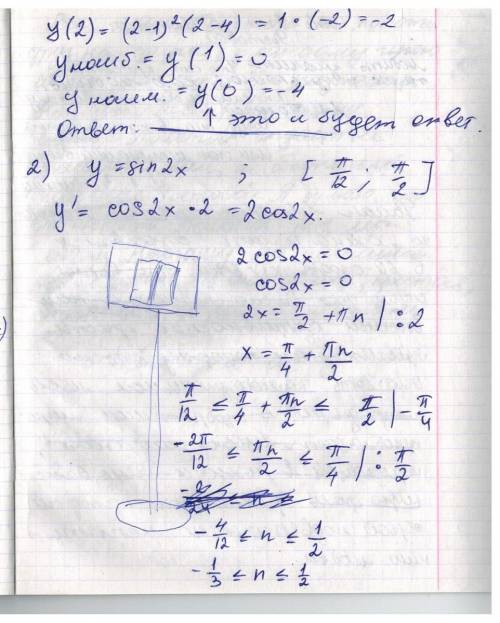 y(2) = (2-1)²(2-4) = 1·(-2) = -2
y наиб. = y(1) = 0
y наим. = y(0) = -4
Ответ: ↑ это и будет ответ.
2) y = sin2x ; [π/12 ; π/2]
y' = cos2x · 2 = 2cos2x.
2cos2x = 0
cos2x = 0
2x = π/2 + πn | : 2
x = π/4 + πn/2
π/12 ≤ π/4 + πn/2 ≤ π/2 | - π/4
-2π/12 ≤ πn/2 ≤ π/4 | : π/2
-4/12 ≤ n ≤ 1/2
-1/3 ≤ n ≤ 1/2